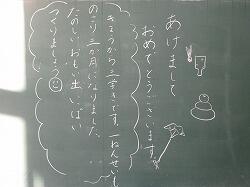 あけまして
おめでとうございます
きょうから三学きです。一ねんせいも
のこり三か月になりました。
たのしいおもい出いっぱい
つくりましょう